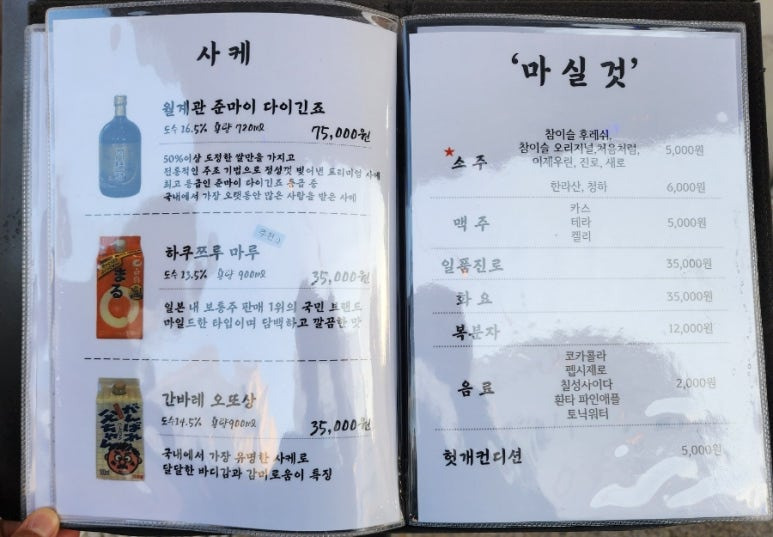 사케
월계관 준마이 다이긴죠
도수 16.5% 용량 720ml
75,000원
50%이상 도정한 쌀만을 가지고
전통적인 주조 기법으로 정성껏 빚어낸 프리미엄 사케
최고 등급인 준마이 다이긴죠 등급 중
국내에서 가장 오랫동안 많은 사람을 받은 사케
추천♪
하쿠쯔루 마루
도수 13.5% 용량 900ml
35,000원
일본 내 보통주 판매 1위의 국민 브랜드
마일드한 타입이며 담백하고 깔끔한 맛
まる
간바레 오또상
도수14.5% 용량900ml
35,000원
국내에서 가장 유명한 사케로
달달한 바디감과 감미로움이 특징
がんばれ
父ちゃん
‘마실것’
★소주
참이슬 후레쉬,
참이슬 오리지널,처음처럼,
이제우린, 진로, 새로
5,000원
한라산, 청하
6,000원
맥주
카스
테라
켈리
5,000원
일품진로
35,000원
화요
35,000원
복분자
12,000원
음료
코카콜라
펩시제로
칠성사이다
환타 파인애플
토닉워터
2,000원
헛개컨디션
5,000원